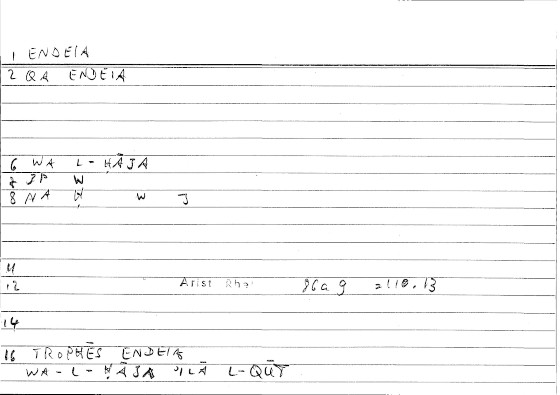 1 ENDEIA
2 QA ENDEIA
6 WA L-ḤĀJA
7 JP W
8 NA Ḥ W J
11
12 Arist Rhet 86a9 =110.13
14
16 TROPHĒS ENDEIA
WA-L-ḤĀJA 'ILĀ L-QŪT